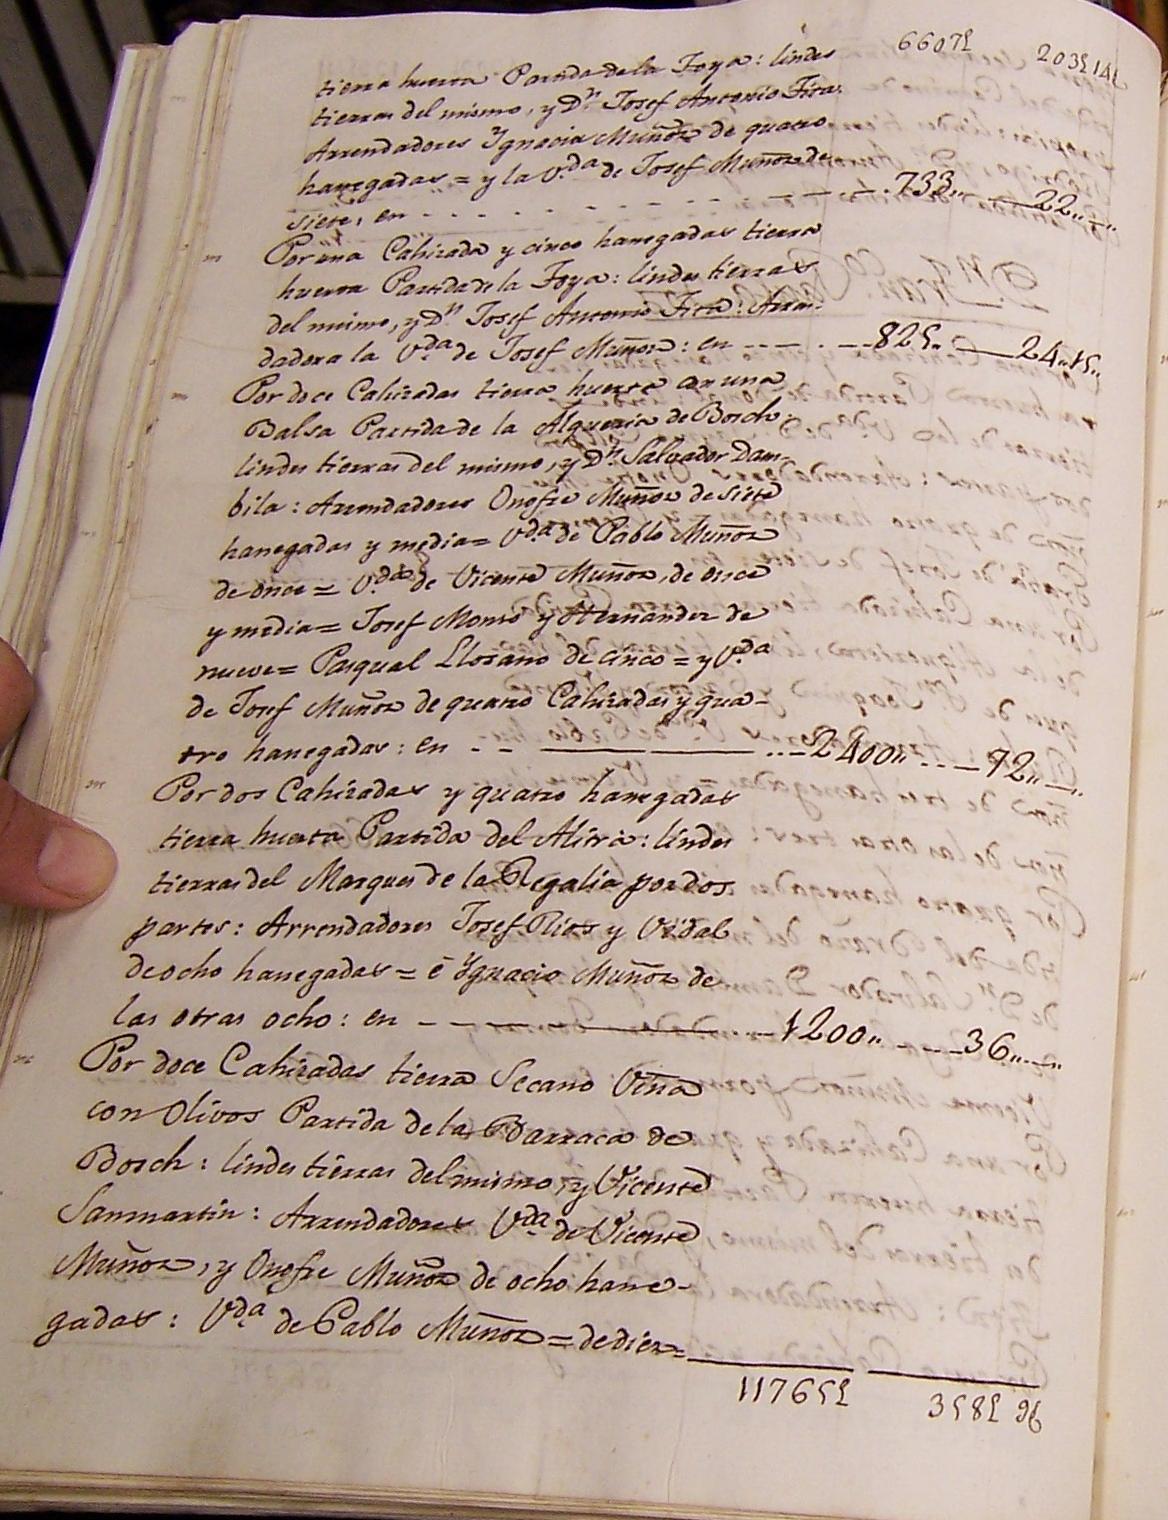 6607£ 203£14£
tierra huerta Partida de la Foya: lindes
tierras del mismo, y Dn. Josef Antonio Fita:
Arrendadores Ygnacia Muñoz de quatro
hanegadas = y la Vda. de Josef Muñoz de
siete, en - - - - - - - - - - - 733,, - - 22,, -
Por una Cahizada y cinco hanegadas tierra
huerta Partida de la Foya: lindes tierras
del mismo, y Dn. Josef Antonio Fita: Arren-
dadora la Vda. de Josef Muñoz: en - - - - 825,, - 24,,15,,
Por doce Cahizadas tierra huerta con una
Balsa Partida de la Alqueria de Bosch:
lindes tierras del mismo, y Dn. Salvador Dam-
bila: Arrendadores Onofre Muñoz de siete
hanegadas y media = Vda. de Pablo Muñoz
de once = Vda. de Vicente Muñoz, de once
y media = Josef Monso y Hernandez de
nueve = Pasqual Llosano de cinco = y Vda.
de Josef Muñoz de quatro Cahizadas y qua-
tro hanegadas: en - - - 2400,, - - 72,, -
Por dos Cahizadas y quatro hanegadas
tierra huerta Partida del Alitrà: lindes
tierras del Marques de la Regalia por dos
partes: Arrendadores Josef Rios y Vidal
de ocho hanegadas = è Ygnacio Muñoz de
las otras ocho: en - - - 1200,, - - 36,, - -
Por doce Cahizadas tierra Secano Viña
con Olivos Partida de la Barraca de
Bosch: lindes tierras del mismo, y Vicente
Sanmartin: Arrendadores Vda. de Vicente
Muñoz, y Onofre Muñoz de ocho hane-
gadas: Vda. de Pablo Muñoz = de diez =
11765£ 358£ 9£